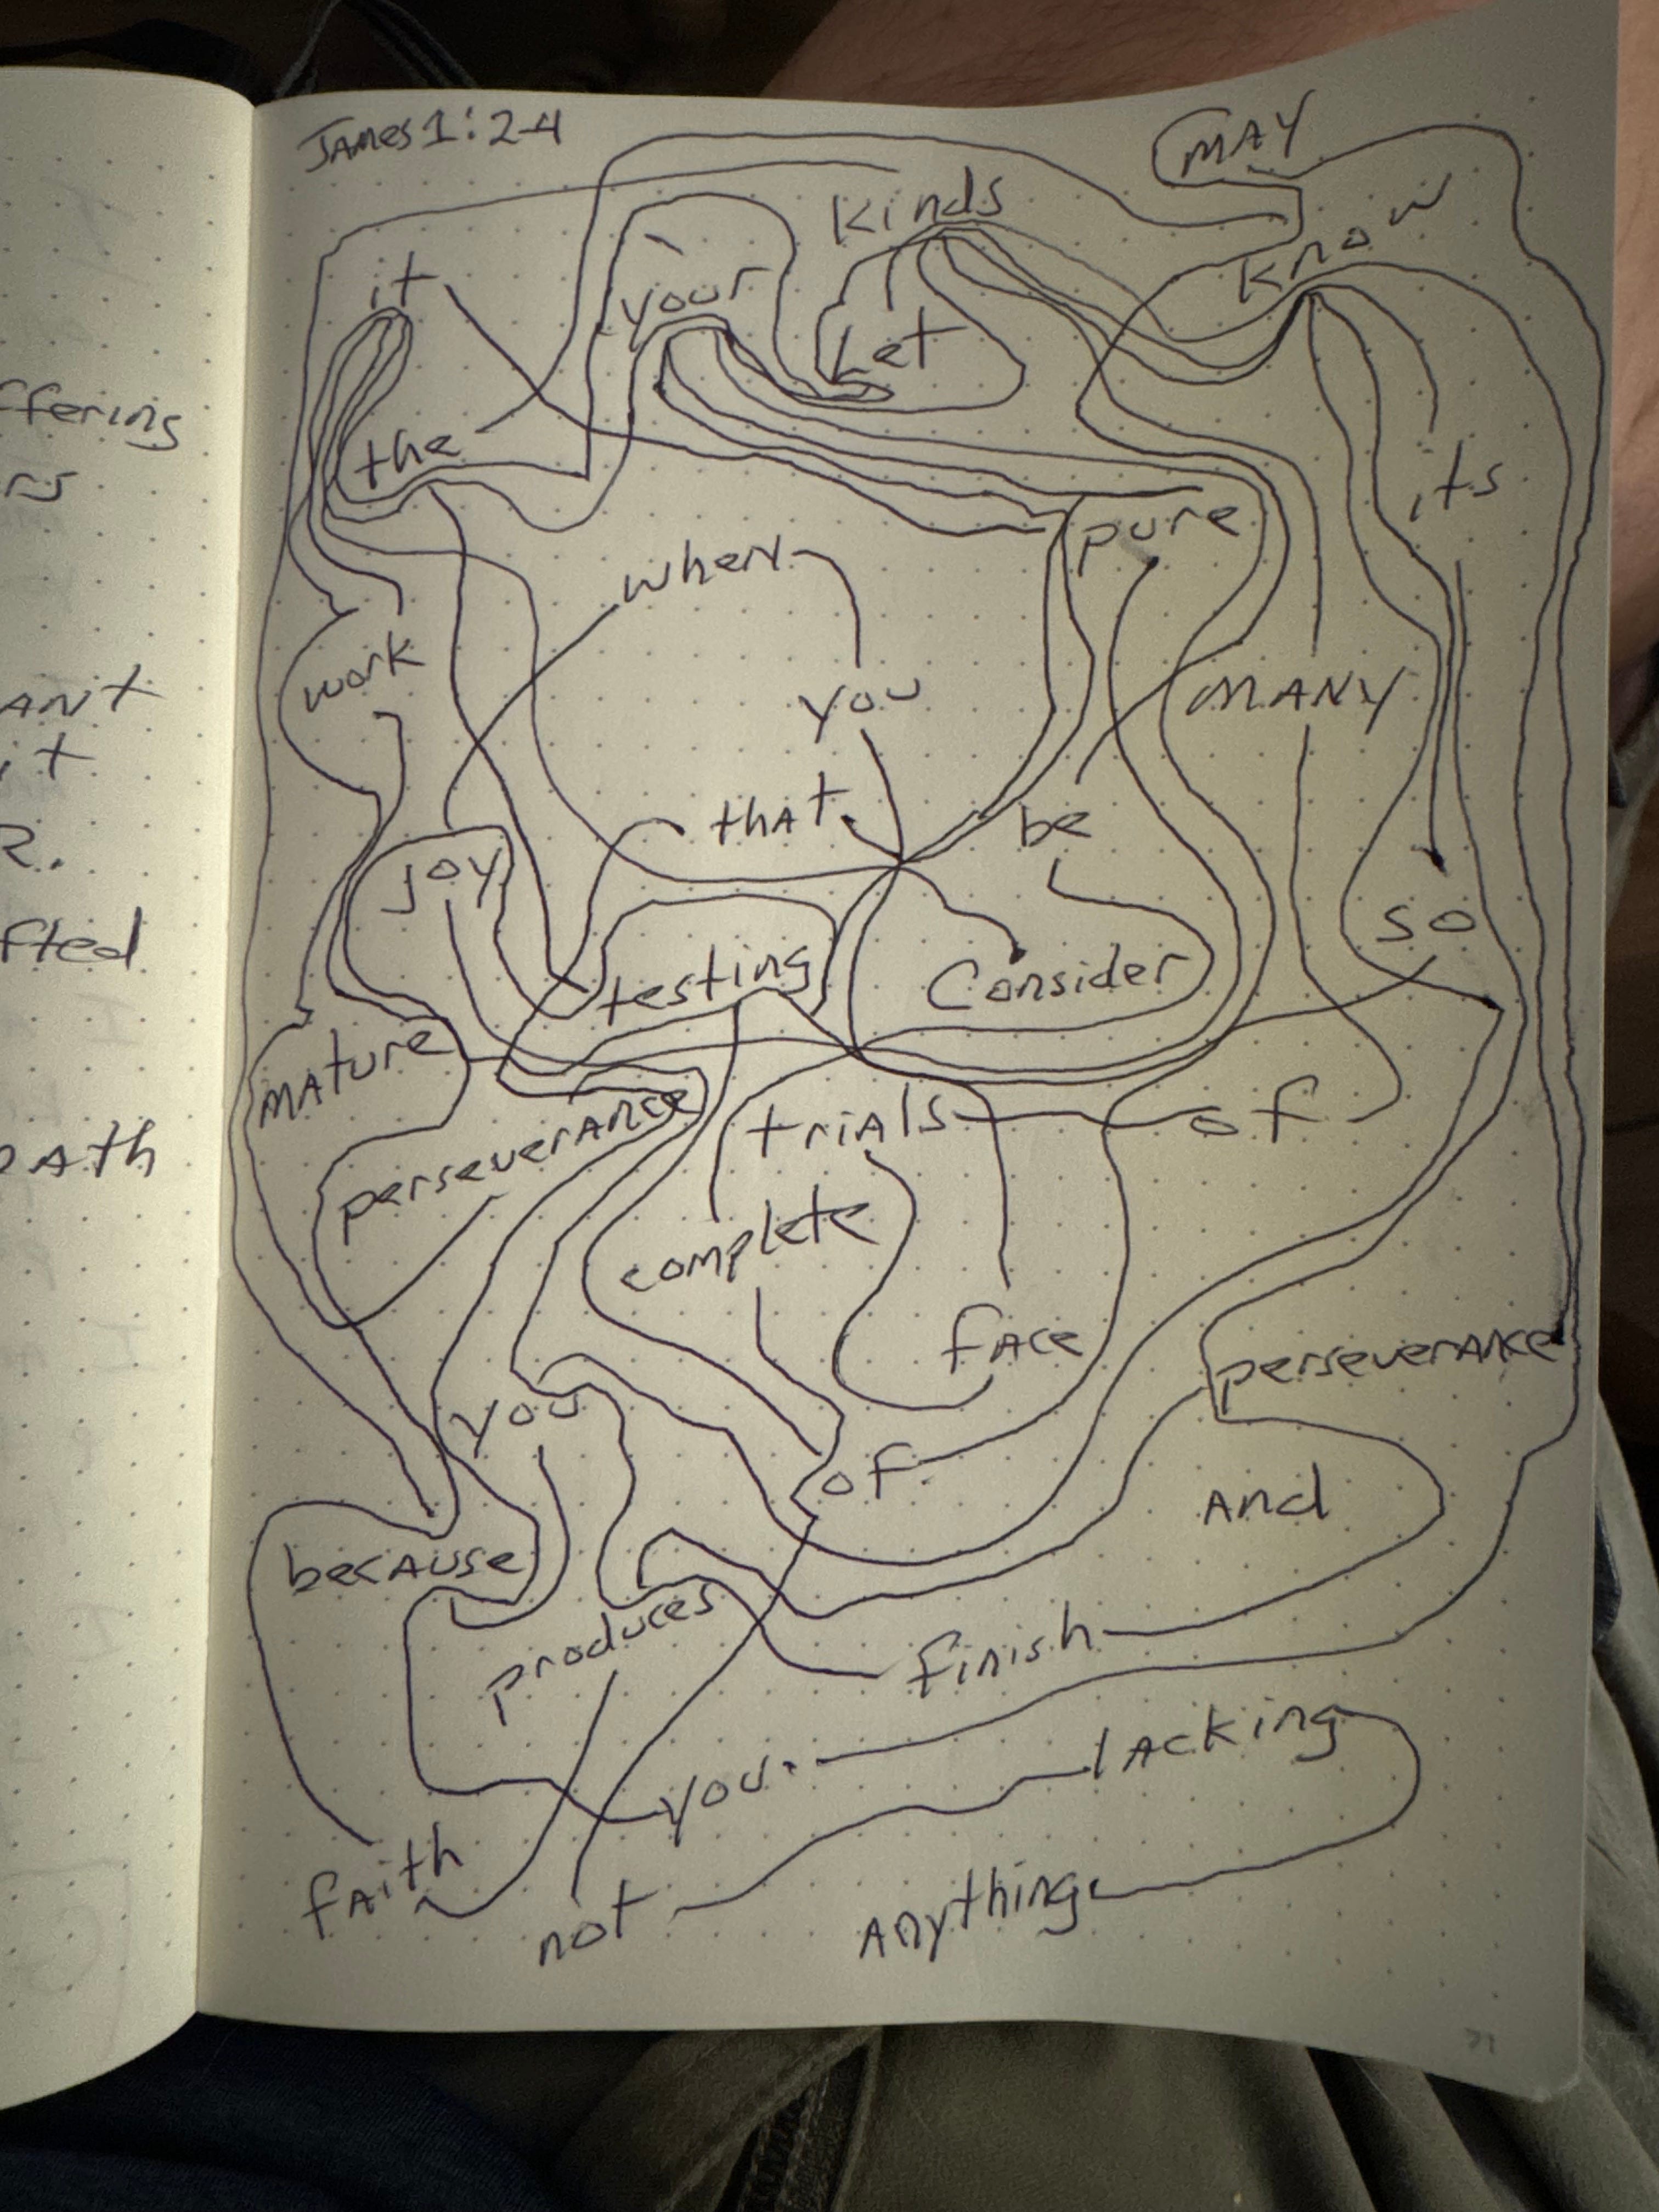 ffering
rs
ant
it
R.
fted
path
James 1:2-4
may
kinds
know
it
your
Let
the
its
pure
when
work
you
many
that
be
joy
so
testing
Consider
mature
perseverance
trials
of
complete
face
perseverance
you
of
and
because
produces
finish
you
lacking
faith
not
anything